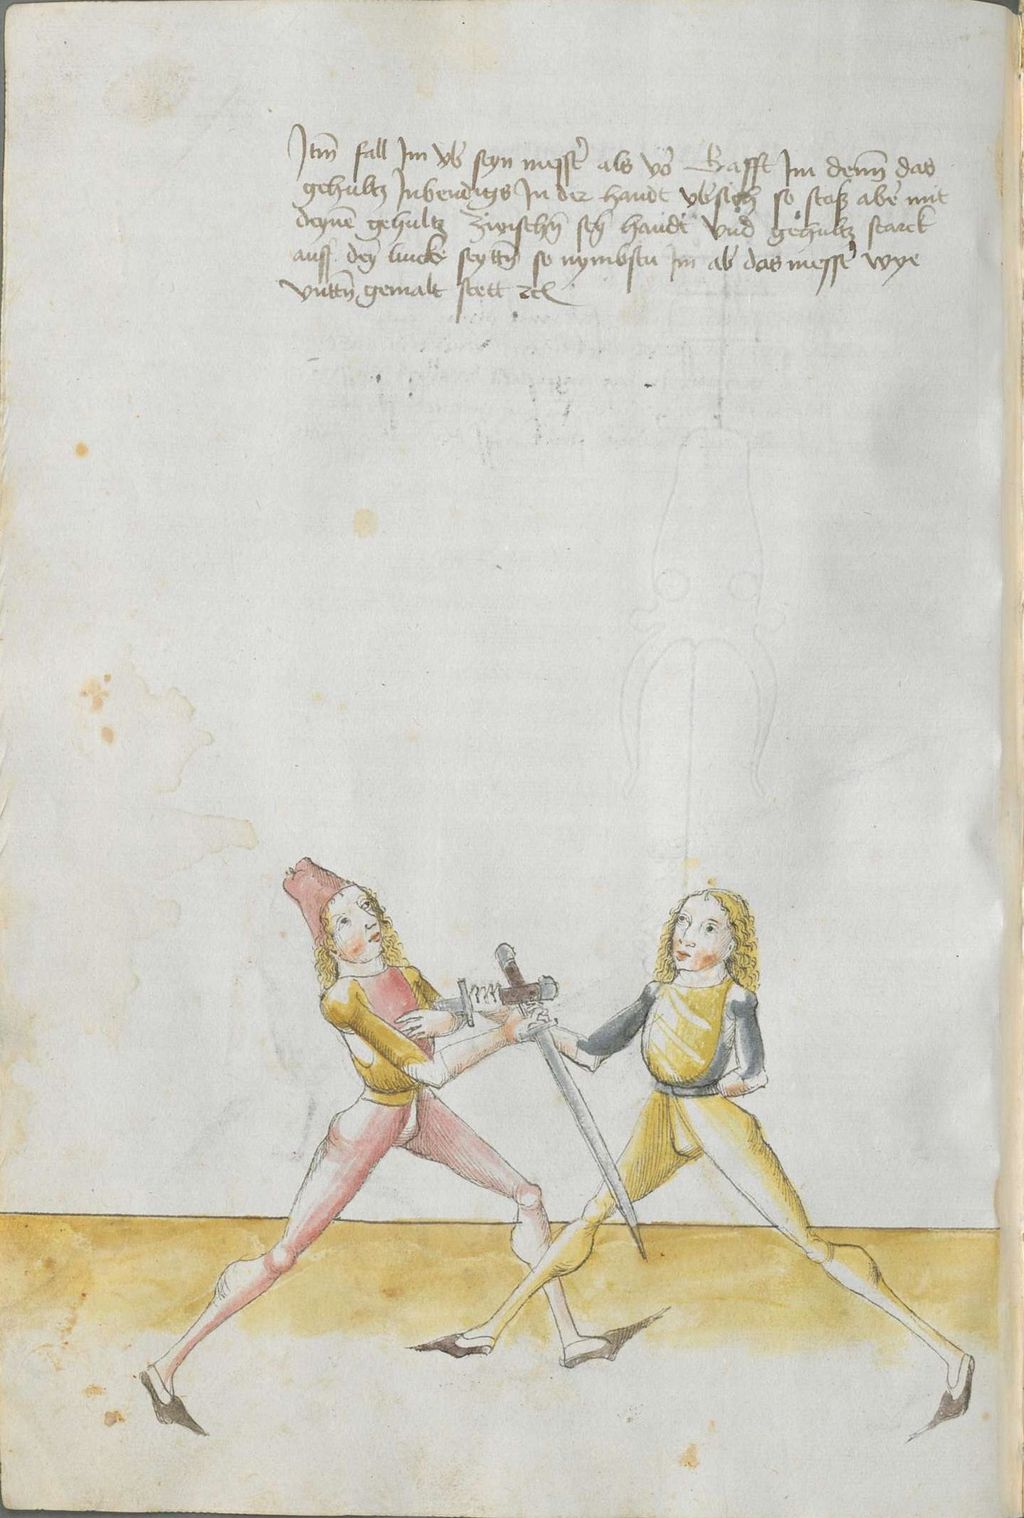 Itm̄ fall Im vb̾ seyn messr̾ als vo͛ Gafft Im denn̄ das
gehultz Inbendigs In der handt vb̾sich so stoß abe̾ mit
deyne̅ gehultz Zwischn̅ sey̅ handt vnd gehultz starck
auff dey̅ lincke seyttn̅ so nymbstu Im ab das messr̾ wye
vnttn̅ gemalt stett ꝛcꝭ